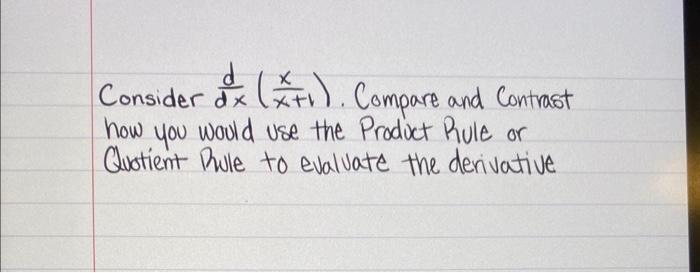 Consider d/dx (x/x+1). Compare and Contrast
how you would use the Product Rule or
Quotient Rule to evaluate the derivative